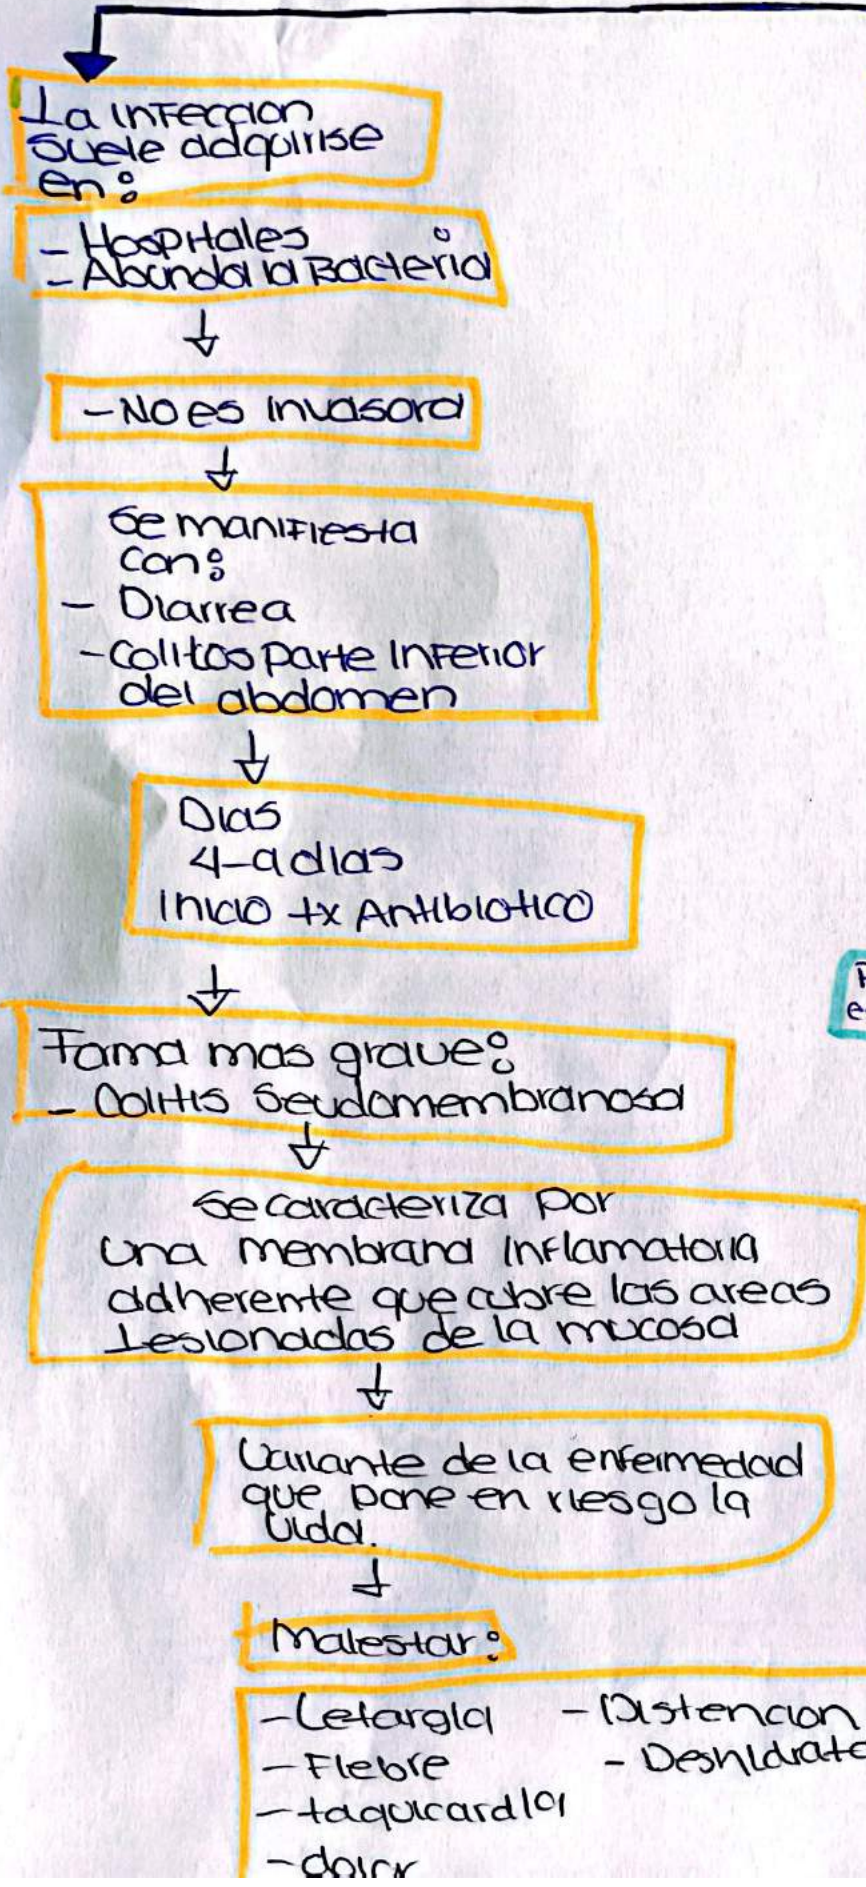 La infeccion
suele adquirise
en:
- Hospitales
- Abunda la Bacteria
- No es invasora
Se manifiesta
con:
- Diarrea
- Colitos parte inferior
del abdomen
Dias
4-9 dias
Inicio tx Antibiotico
Forma mas grave:
- Colitis Seudomembranosa
Se caracteriza por
una membrana inflamatoria
adherente que cubre las areas
Lesionadas de la mucosa
Variante de la enfermedad
que pone en riesgo la
vida.
Malestar:
- Letargia - Distencion
- Fiebre - Deshidrata
- taquicardia
- dolor